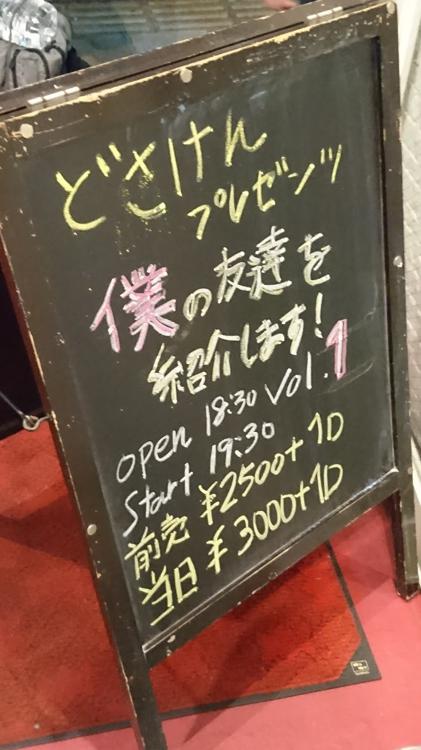 どさけん
プレゼンツ
僕の友達を
紹介します!
Vol.1
open 18:30
Start 19:30
前売 ¥2500+1D
当日 ¥3000+1D